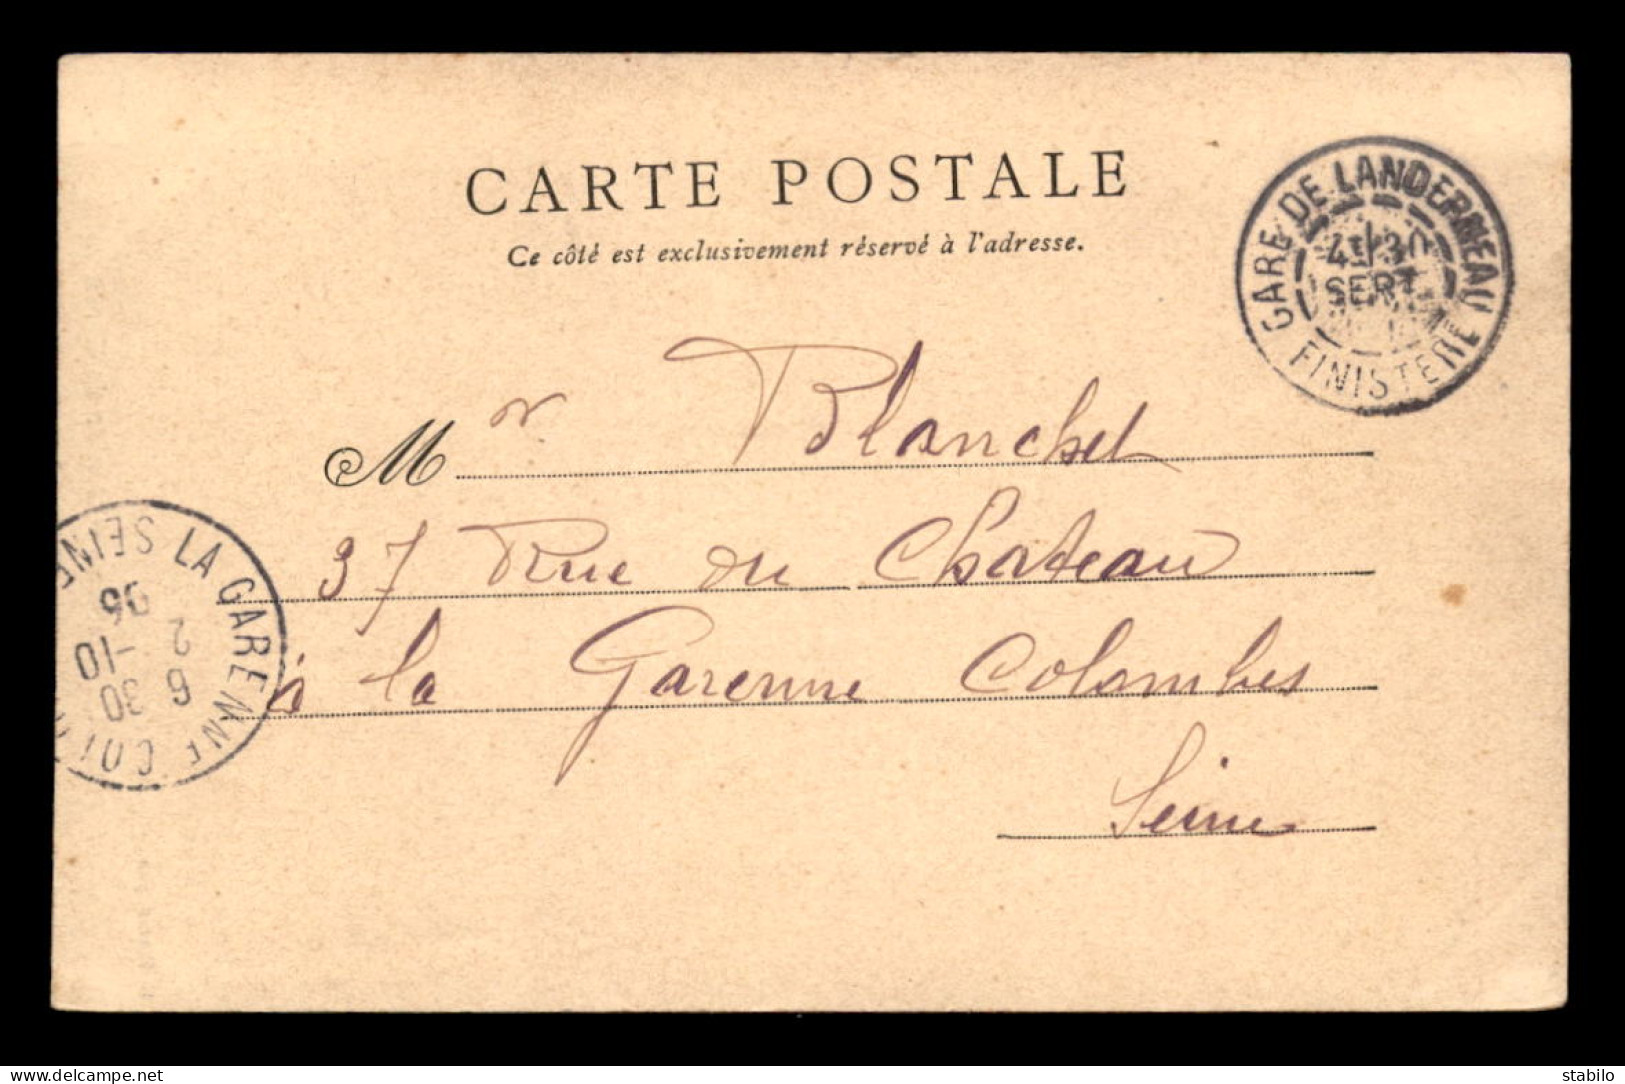 CARTE POSTALE
Ce côté est exclusivement réservé à l'adresse.
GARE DE LANDERNEAU
30
SEPT
FINISTERE
Mr Blanchet
37 Rue du Chateau
à la Garenne Colombes
Seine
LA GARENNE COLO
SEINE
6 30
2 -10
delcampe.net
stabilo